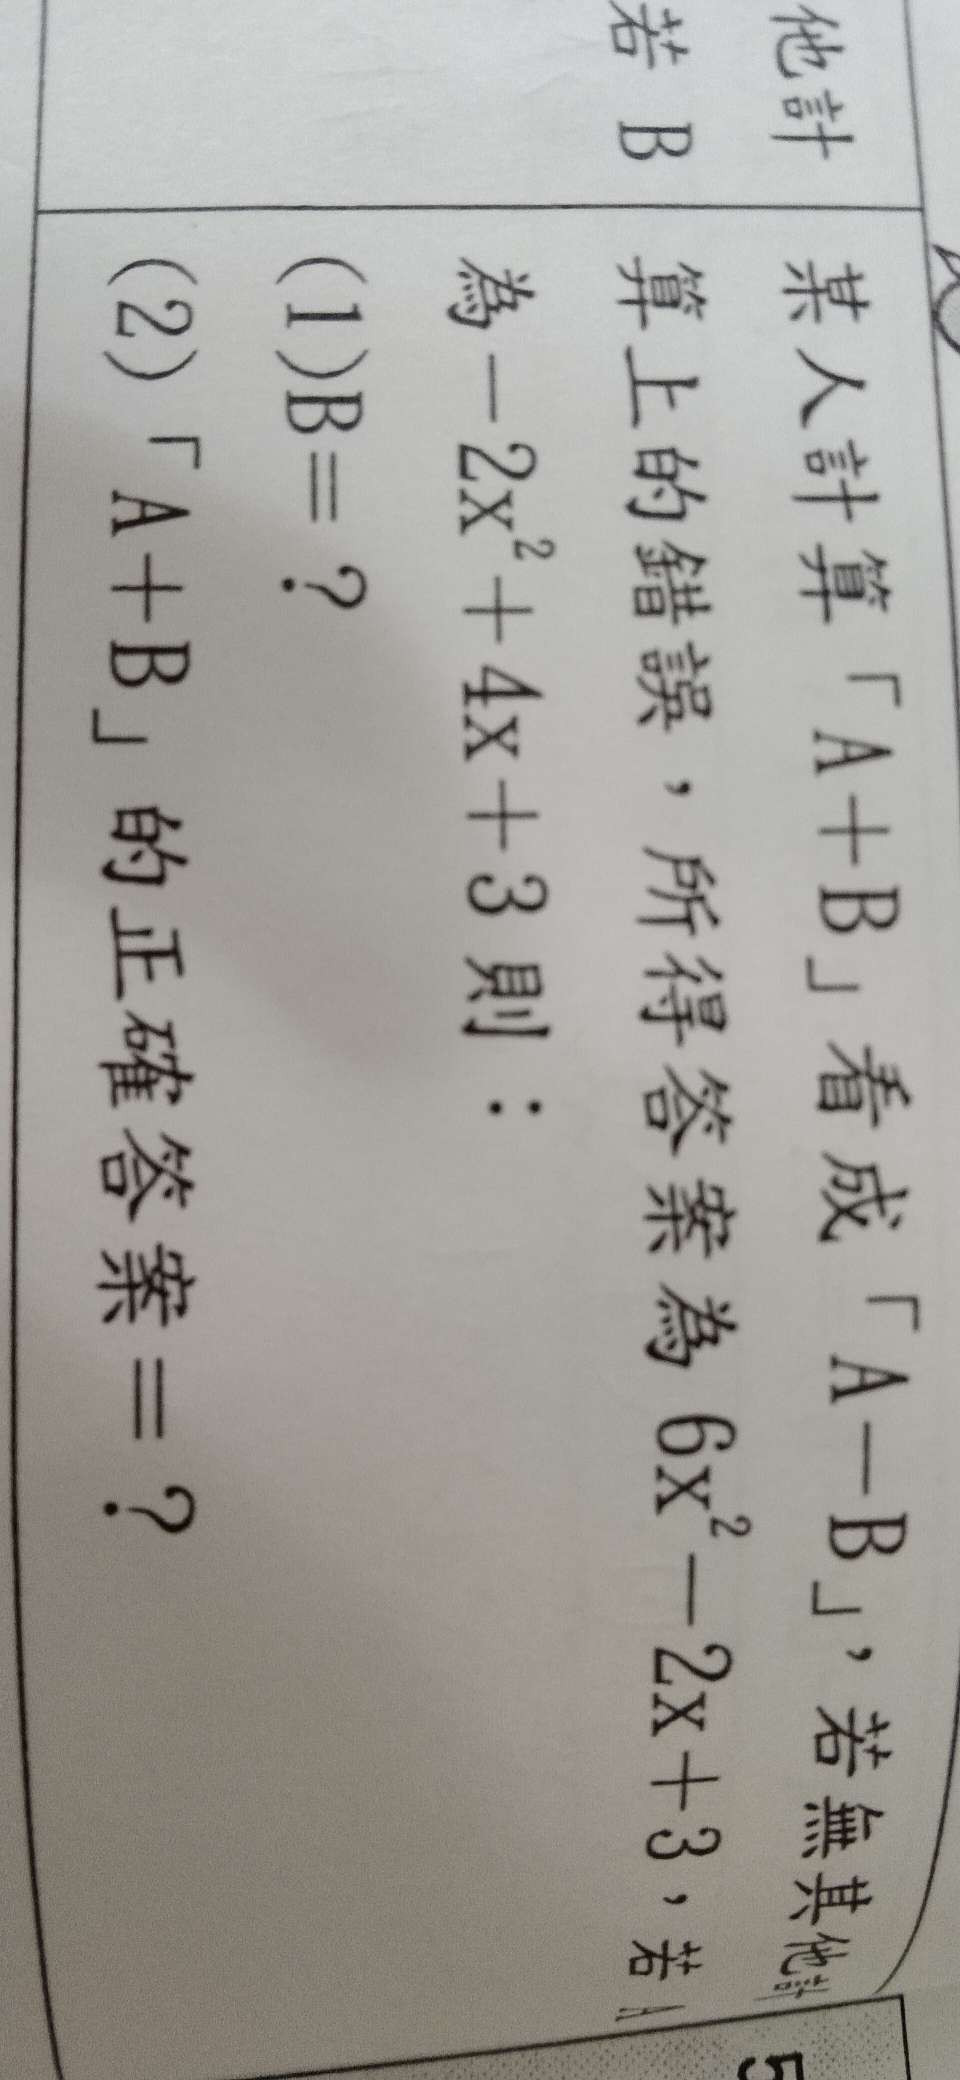 他計
若 B
某人計算「A＋B」看成「A－B」，若無其他計
算上的錯誤，所得答案為 6x²－2x＋3，若 A
為－2x²＋4x＋3 則：
(1)B＝？
(2)「A＋B」的正確答案＝？
5